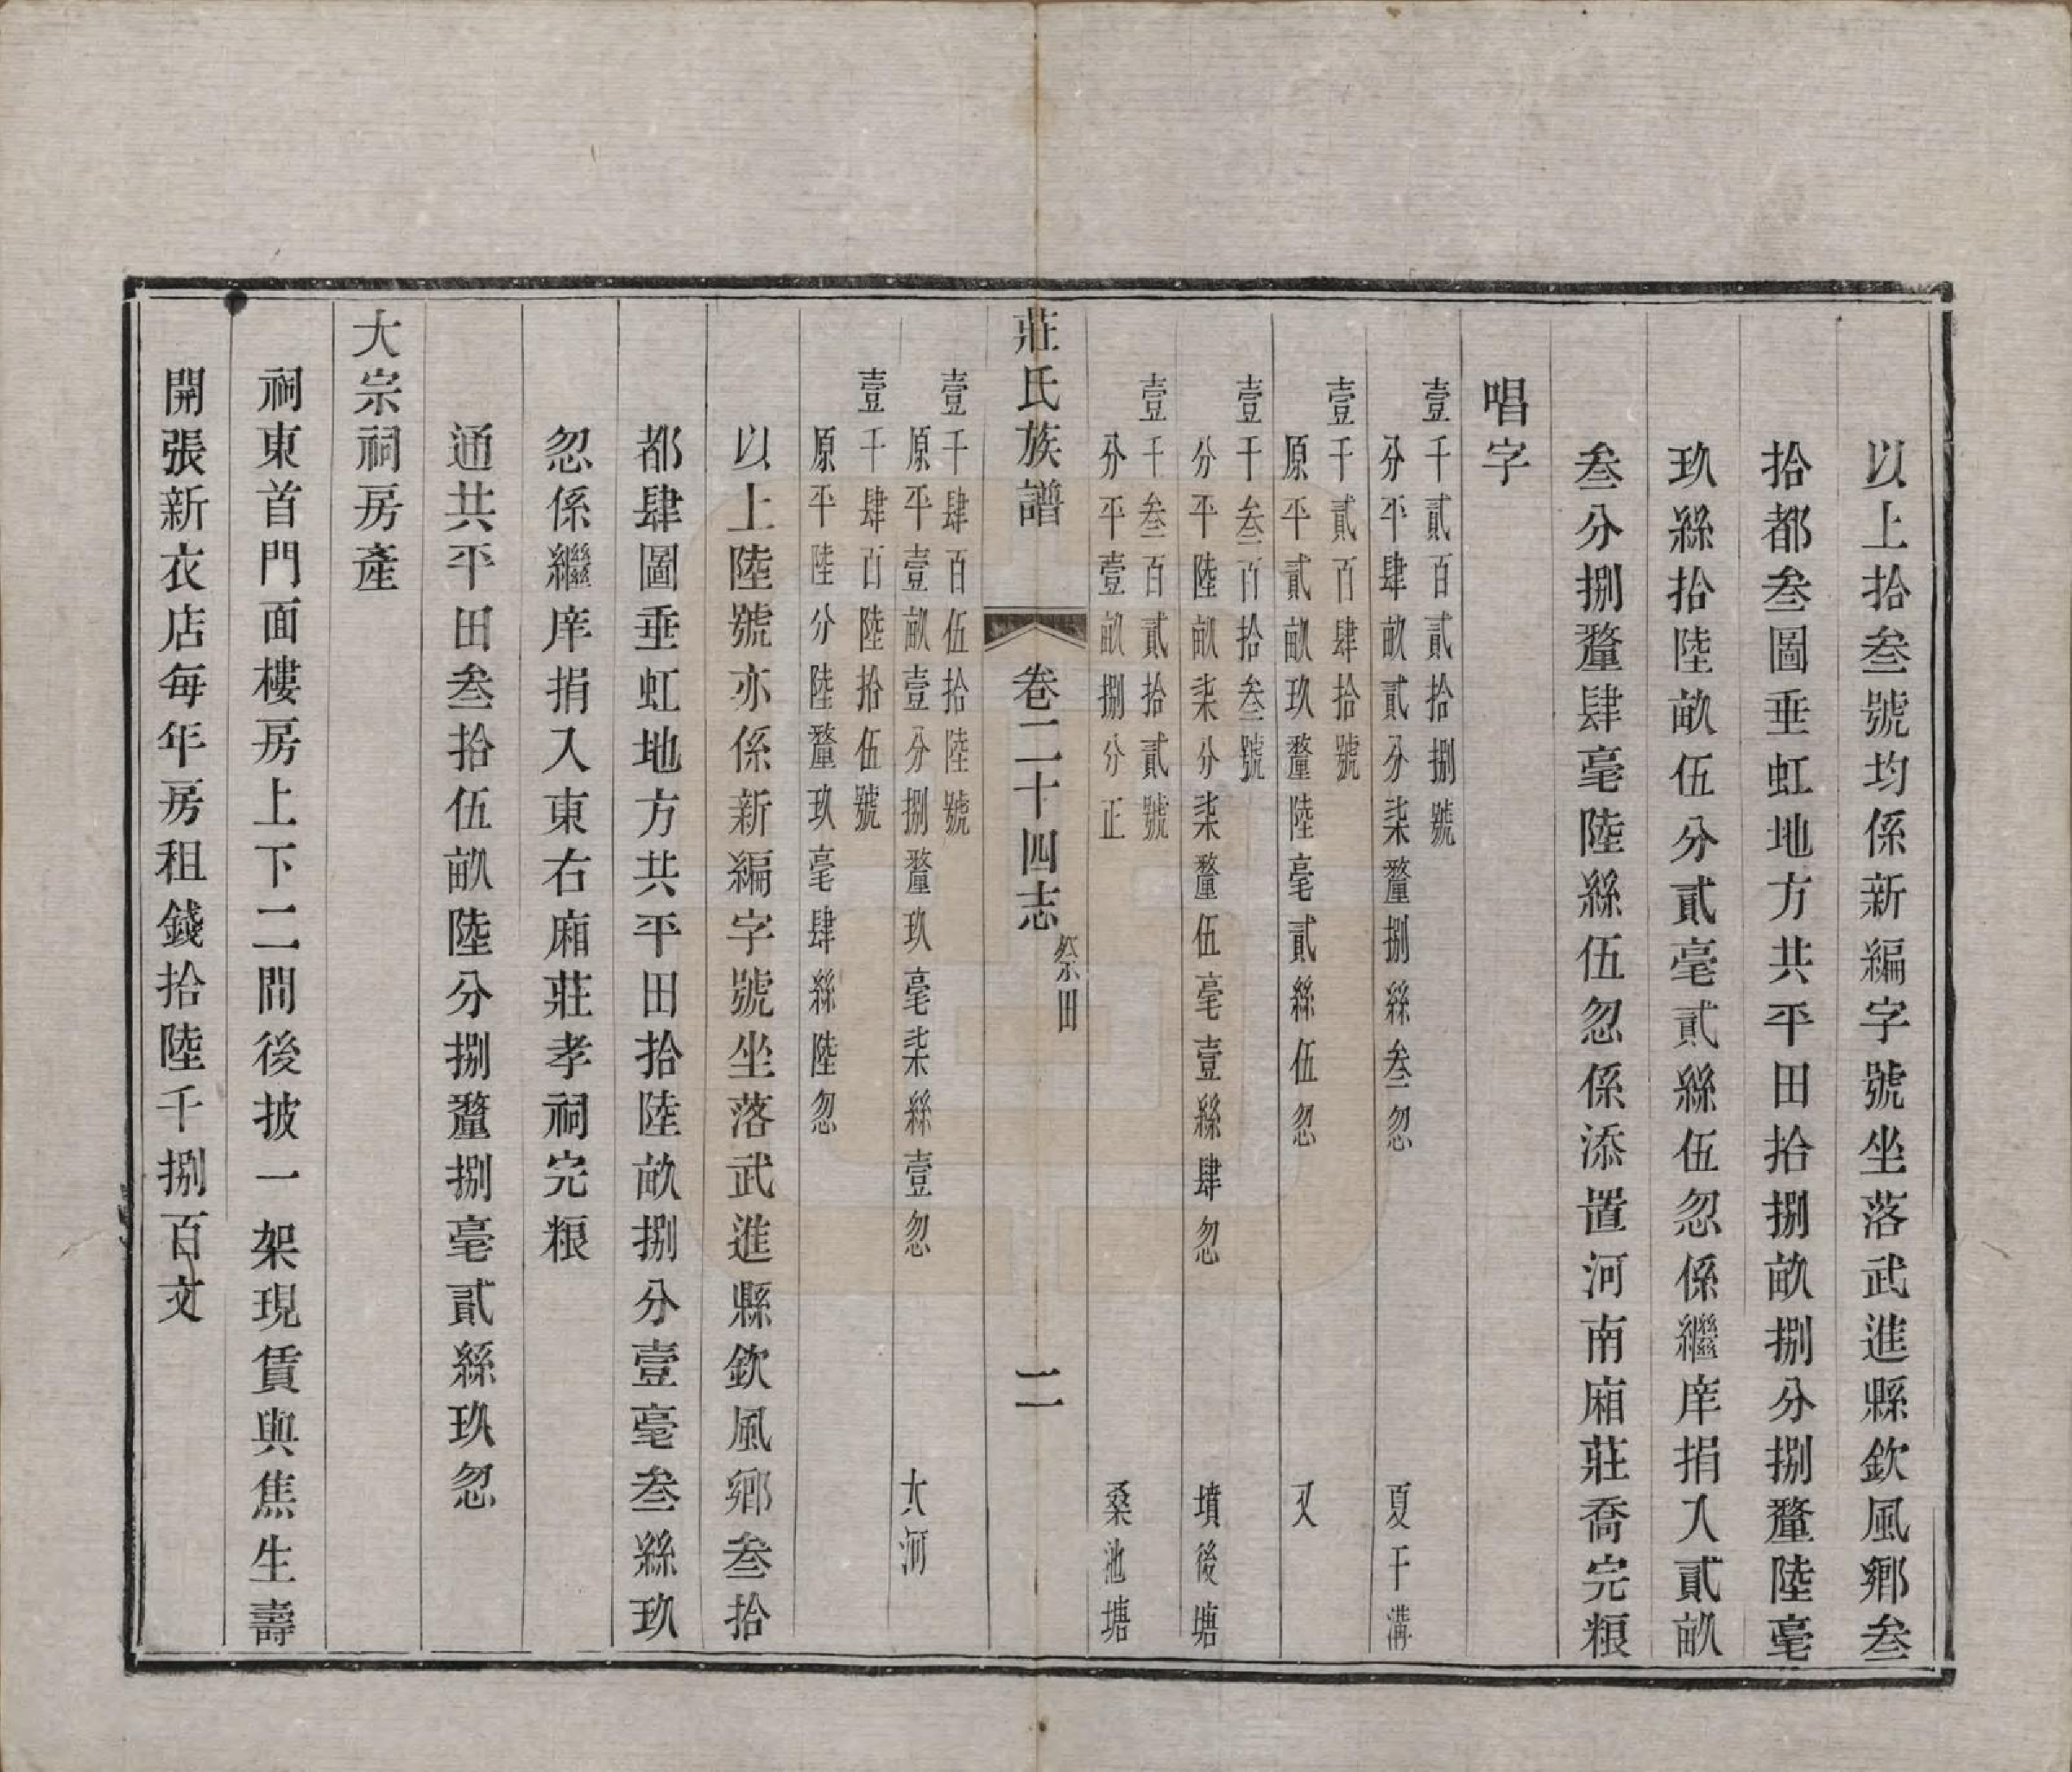 以上拾叁號均係新編字號坐落武進縣欽風鄉叁
拾都叁圖垂虹地方共平田拾捌畝捌分捌釐陸毫
玖絲拾陸畝伍分貳毫貳絲伍忽係繼庠捐入貳畝
叁分捌釐肆毫陸絲伍忽係添置河南廂莊喬完粮
唱字
壹千貳百貳拾捌號
分平肆畝貳分柒釐捌絲叁忽 夏干溝
壹千貳百肆拾號
原平貳畝玖釐陸毫貳絲伍忽 又
壹千叁百拾叁號
分平陸畝柒分柒釐伍毫壹絲肆忽 墳後塘
壹千叁百貳拾貳號
分平壹畝捌分正 桑池塘
莊氏族譜 卷二十四志 祭田 二
壹千肆百伍拾陸號
原平壹畝壹分捌釐玖毫柒絲壹忽 大河
壹千肆百陸拾伍號
原平陸分陸釐玖毫肆絲陸忽
以上陸號亦係新編字號坐落武進縣欽風鄉叁拾
都肆圖垂虹地方共平田拾陸畝捌分壹毫叁絲玖
忽係繼庠捐入東右廂莊孝祠完粮
通共平田叁拾伍畝陸分捌釐捌毫貳絲玖忽
大宗祠房產
祠東首門面樓房上下二間後披一架現賃與焦生壽
開張新衣店每年房租錢拾陸千捌百文